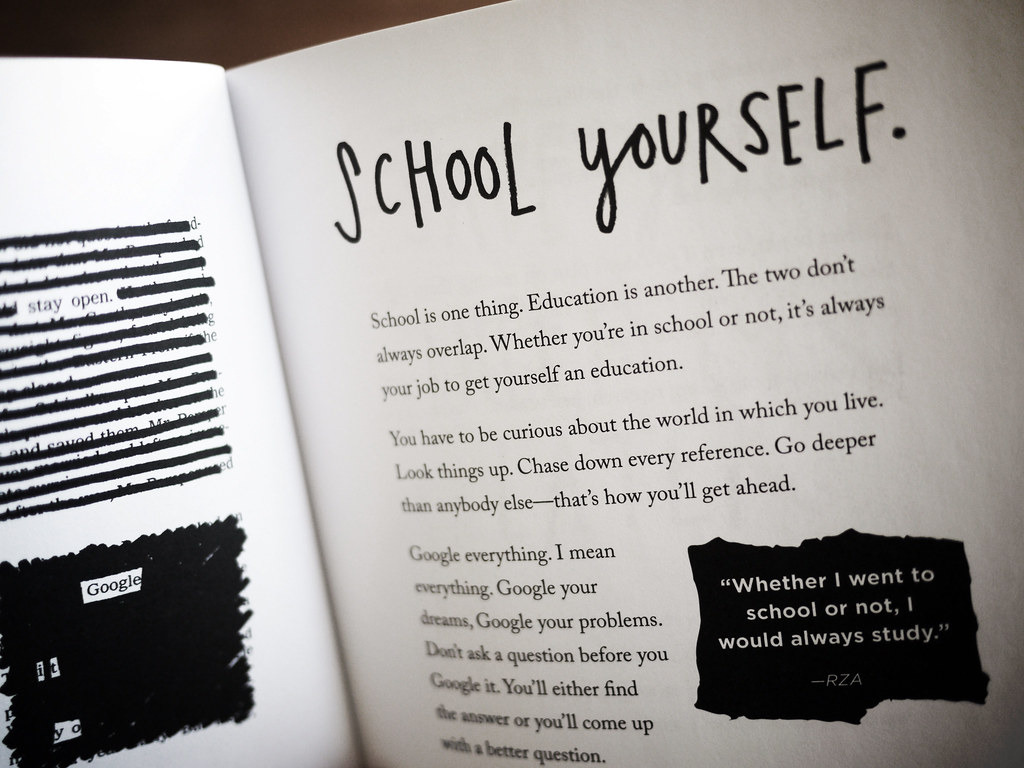 stay open.
and saved them. Mr.
Google
SCHOOL YOURSELF.
School is one thing. Education is another. The two don't
always overlap. Whether you're in school or not, it's always
your job to get yourself an education.
You have to be curious about the world in which you live.
Look things up. Chase down every reference. Go deeper
than anybody else—that's how you'll get ahead.
Google everything. I mean
everything. Google your
dreams, Google your problems.
Don't ask a question before you
Google it. You'll either find
the answer or you'll come up
with a better question.
“Whether I went to
school or not, I
would always study.”
—RZA